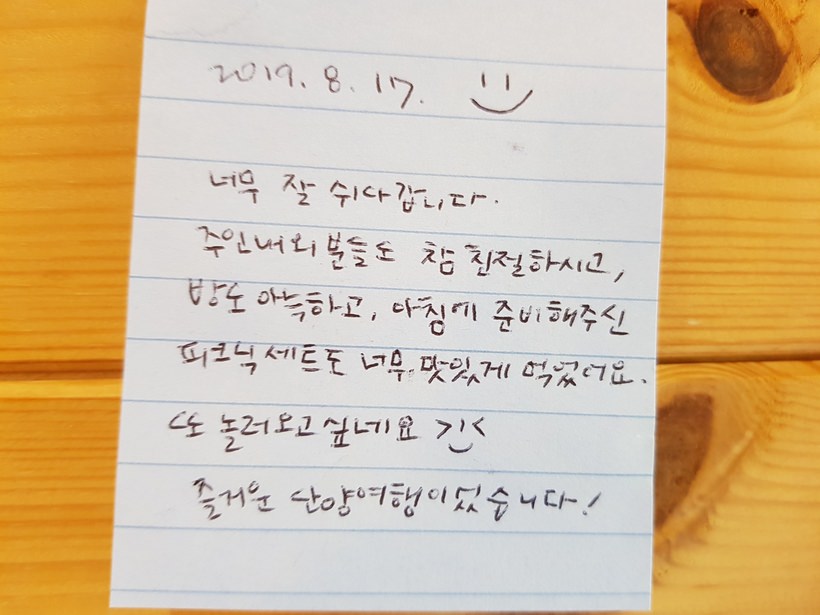 2019. 8. 17.
너무 잘 쉬다갑니다.
주인내외분들도 참 친절하시고,
방도 아늑하고, 아침에 준비해주신
피크닉세트도 너무 맛있게 먹었어요.
또 놀러오고싶네요 >ᴗ<
즐거운 단양여행이었습니다!